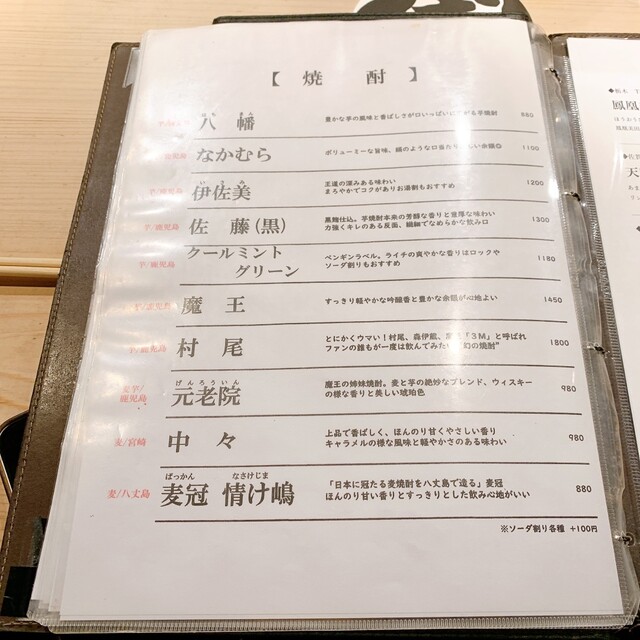 【 焼 酎 】
八 幡
豊かな芋の風味と香ばしさが口いっぱいに
芋焼酎
880
なかむら
ボリューミーな旨味、絹のような口当たり
1100
伊佐美
王道の深みある味わい
まろやかでコクがありお湯割もおすすめ
1200
芋/鹿児島
佐 藤(黒)
黒麹仕込。芋焼酎本来の芳醇な香りと重厚な味わい
力強くキレのある反面、繊細でなめらかな飲み口
1300
芋/鹿児島
クールミント
グリーン
ペンギンラベル。ライチの爽やかな香りはロックや
ソーダ割りもおすすめ
1180
魔 王
すっきり軽やかな吟醸香と豊かな余韻が心地よい
1450
村 尾
とにかくウマい!村尾、森伊蔵、
「3M」と呼ばれ
ファンの誰もが一度は飲んでみたい
幻の焼酎"
1800
麦芋/
鹿児島
げんろういん
元老院
魔王の姉妹焼酎。麦と芋の絶妙なブレンド、ウィスキー
の様な香りと美しい琥珀色
980
麦/宮崎
中 々
上品で香ばしく、ほんのり甘くやさしい香り
キャラメルの様な風味と軽やかさのある味わい
980
麦/八丈島
ばっかん なさけじま
麦冠 情け嶋
「日本に冠たる麦焼酎を八丈島で造る」麦冠
ほんのり甘い香りとすっきりとした飲み心地がいい
880
※ソーダ割り各種 +100円
鳳凰
天